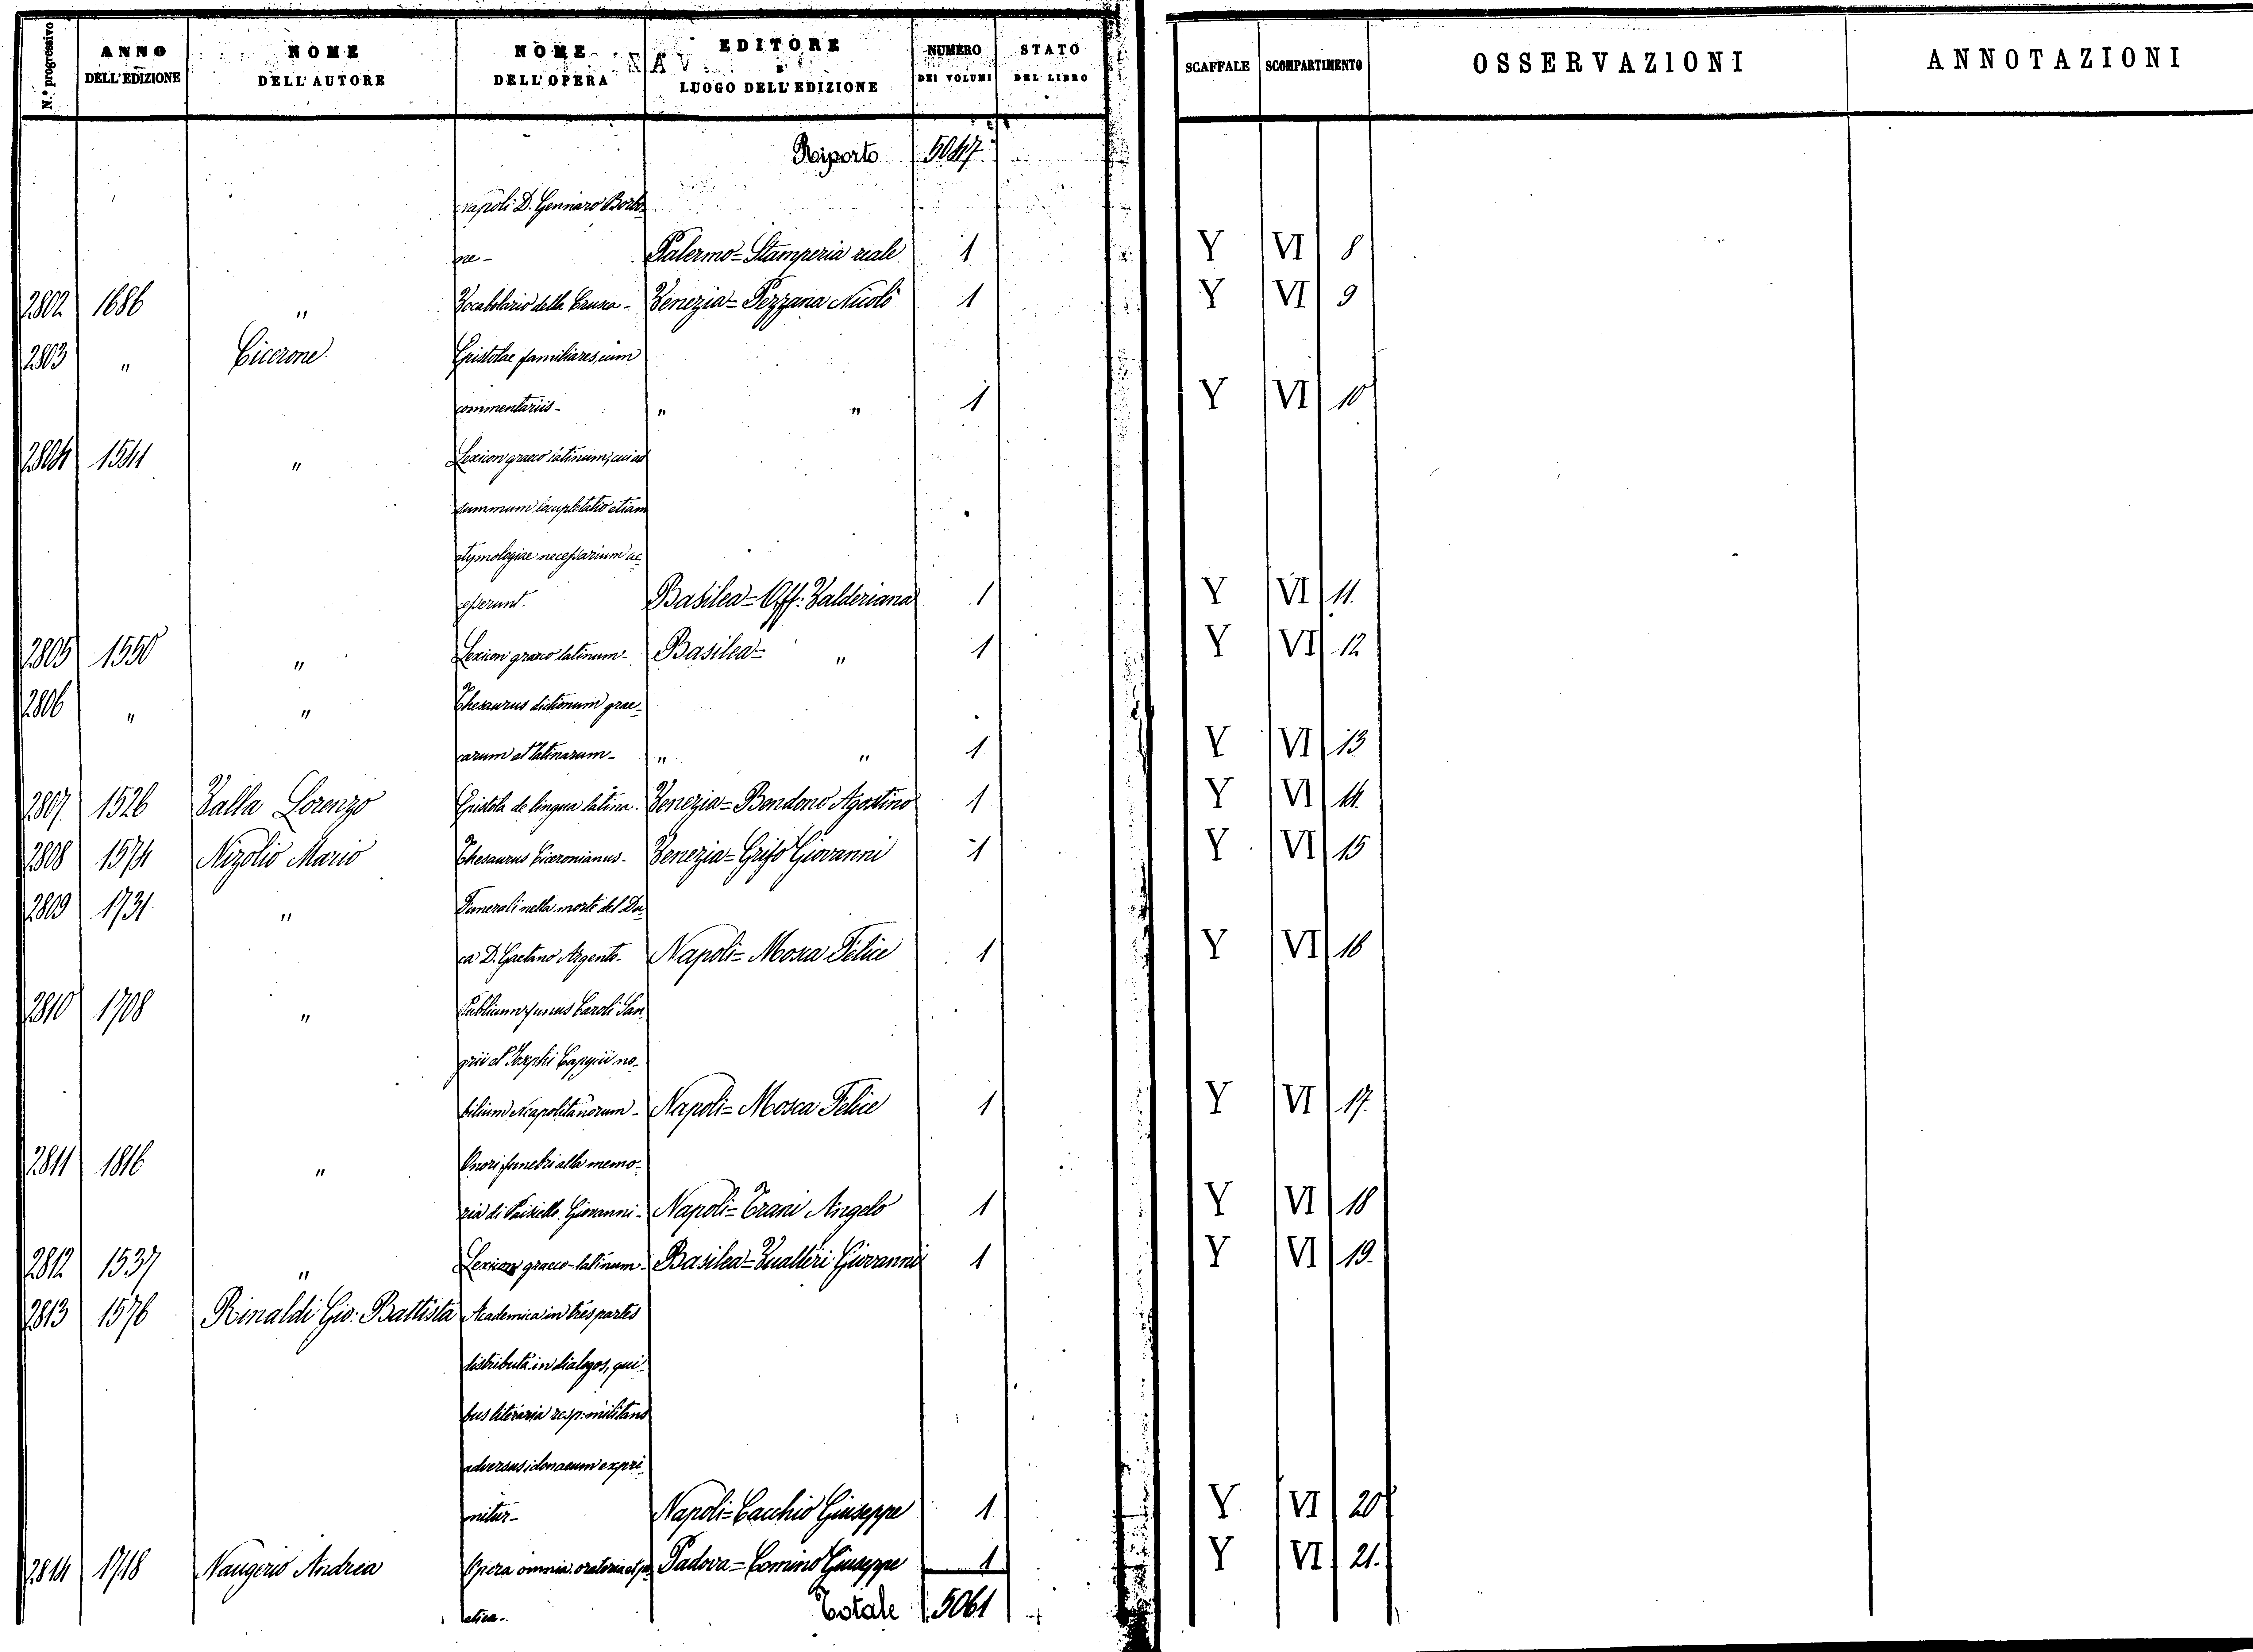 N.° progressivo | ANNO DELL'EDIZIONE | NOME DELL'AUTORE | NOME DELL'OPERA | EDITORE E LUOGO DELL'EDIZIONE | NUMERO DEI VOLUMI | STATO DEL LIBRO | SCAFFALE | SCOMPARTIMENTO | OSSERVAZIONI | ANNOTAZIONI
Riporto 5047
Napoli D. Gennaro Borbo-
ne - Palermo = Stamperia reale 1 Y VI 8
2802 1686 " Vocabolario della Crusca - Venezia = Pezzana Nicolò 1 Y VI 9
2803 " Cicerone Epistolae familiares, cum
commentariis - " " 1 Y VI 10
2804 1541 " Lexicon graeco latinum, cui ad
summum locupletatio etiam
etymologiae necessarium ac
cesserunt. Basilea = Off: Valderiana 1 Y VI 11.
2805 1550 " Lexicon graeco latinum - Basilea = " 1 Y VI 12
2806 " " Thesaurus dictionum grae-
carum et latinarum - " " 1 Y VI 13
2807 1526 Valla Lorenzo Epistola de lingua latina - Venezia = Bondono Agostino 1 Y VI 14.
2808 1574 Nizolio Mario Thesaurus Ciceronianus - Venezia = Grifo Giovanni 1 Y VI 15
2809 1731 " Funerali nella morte del Du-
ca D. Gaetano Argento - Napoli = Mosca Felice 1 Y VI 16
2810 1708 " Publicum funus Caroli San-
grii et Josephi Capycii no-
bilium Neapolitanorum - Napoli = Mosca Felice 1 Y VI 17.
2811 1816 " Onori funebri alla memo-
ria di Paisiello Giovanni - Napoli = Trani Angelo 1 Y VI 18
2812 1537 " Lexicon graeco-latinum - Basilea = Vualteri Giovanni 1 Y VI 19.
2813 1576 Rinaldi Gio: Battista Academica in tres partes
distributa in dialogos, qui-
bus literaria resp: militans
adversus idonaeum expri-
mitur - Napoli = Cacchio Giuseppe 1 Y VI 20
2814 1718 Naugerio Andrea Opera omnia oratoria et po- Padova = Comino Giuseppe 1 Y VI 21.
etica - Totale 5061